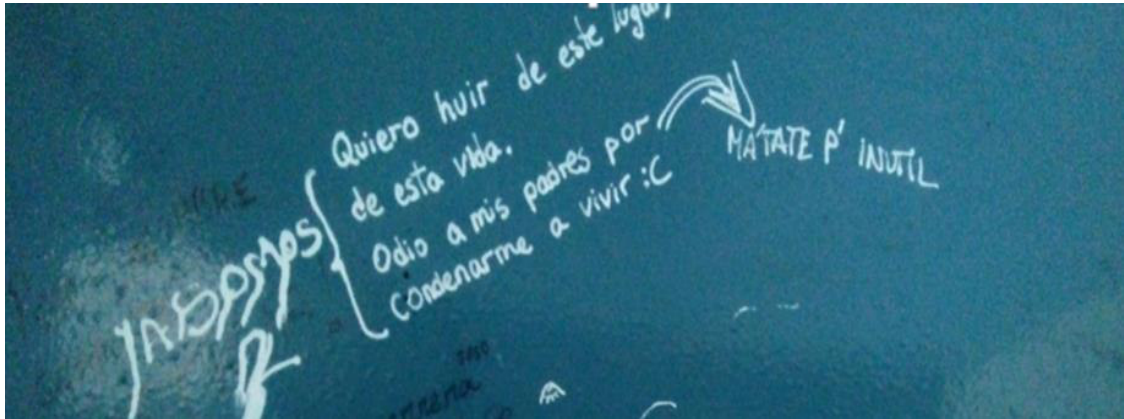 Quiero huir de este lugar,
de esta vida.
Odio a mis padres por
condenarme a vivir :C
MÁTATE P' INUTIL